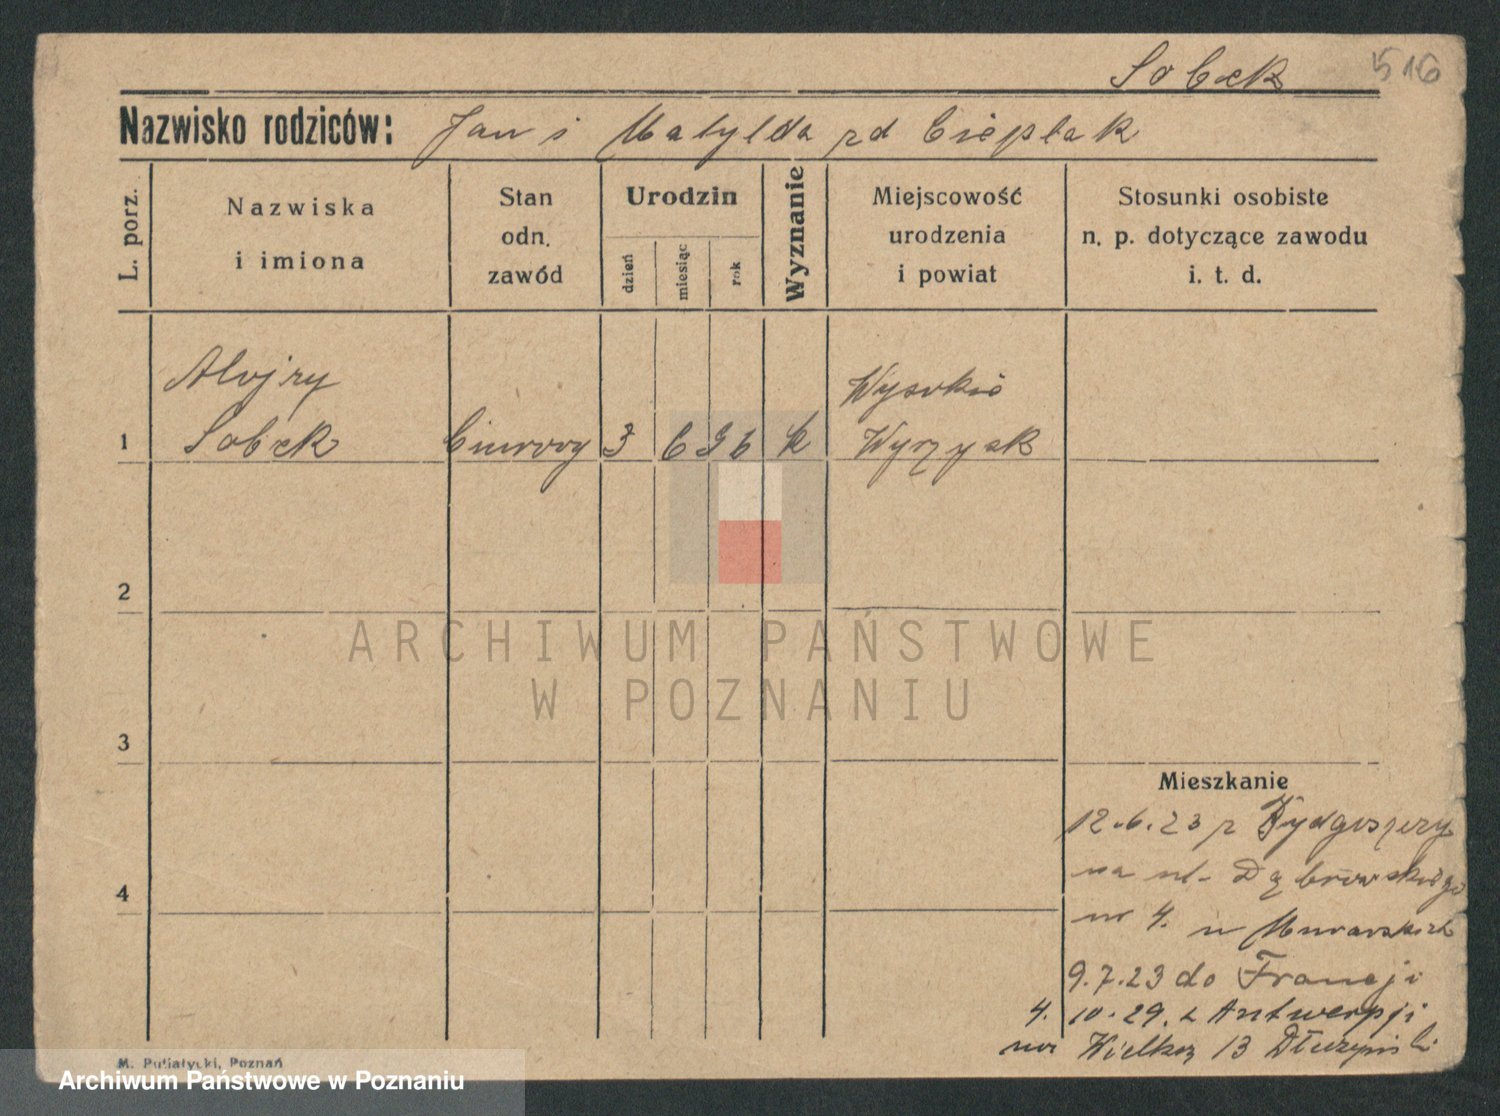 Sobek 516
Nazwisko rodziców: Jan i Matylda zd Cieplak
L. porz.
Nazwiska
i imiona
Stan
odn.
zawód
Urodzin
dzień
miesiąc
rok
Wyznanie
Miejscowość
urodzenia
i powiat
Stosunki osobiste
n. p. dotyczące zawodu
i. t. d.
Alojzy Wysokie
1 Sobek 3 6 96 k Wyrzysk
2
ARCHIWUM PAŃSTWOWE
W POZNANIU
3
Mieszkanie
12.6.23 z Bydgoszczy
4 na ul. Dąbrowskiego
nr 4. u Murarskich
9.7.23 do Francji
4. 10.29. z Antwerpji
na Wielką 13 Dłużyński
M. Putiatycki, Poznań
Archiwum Państwowe w Poznaniu